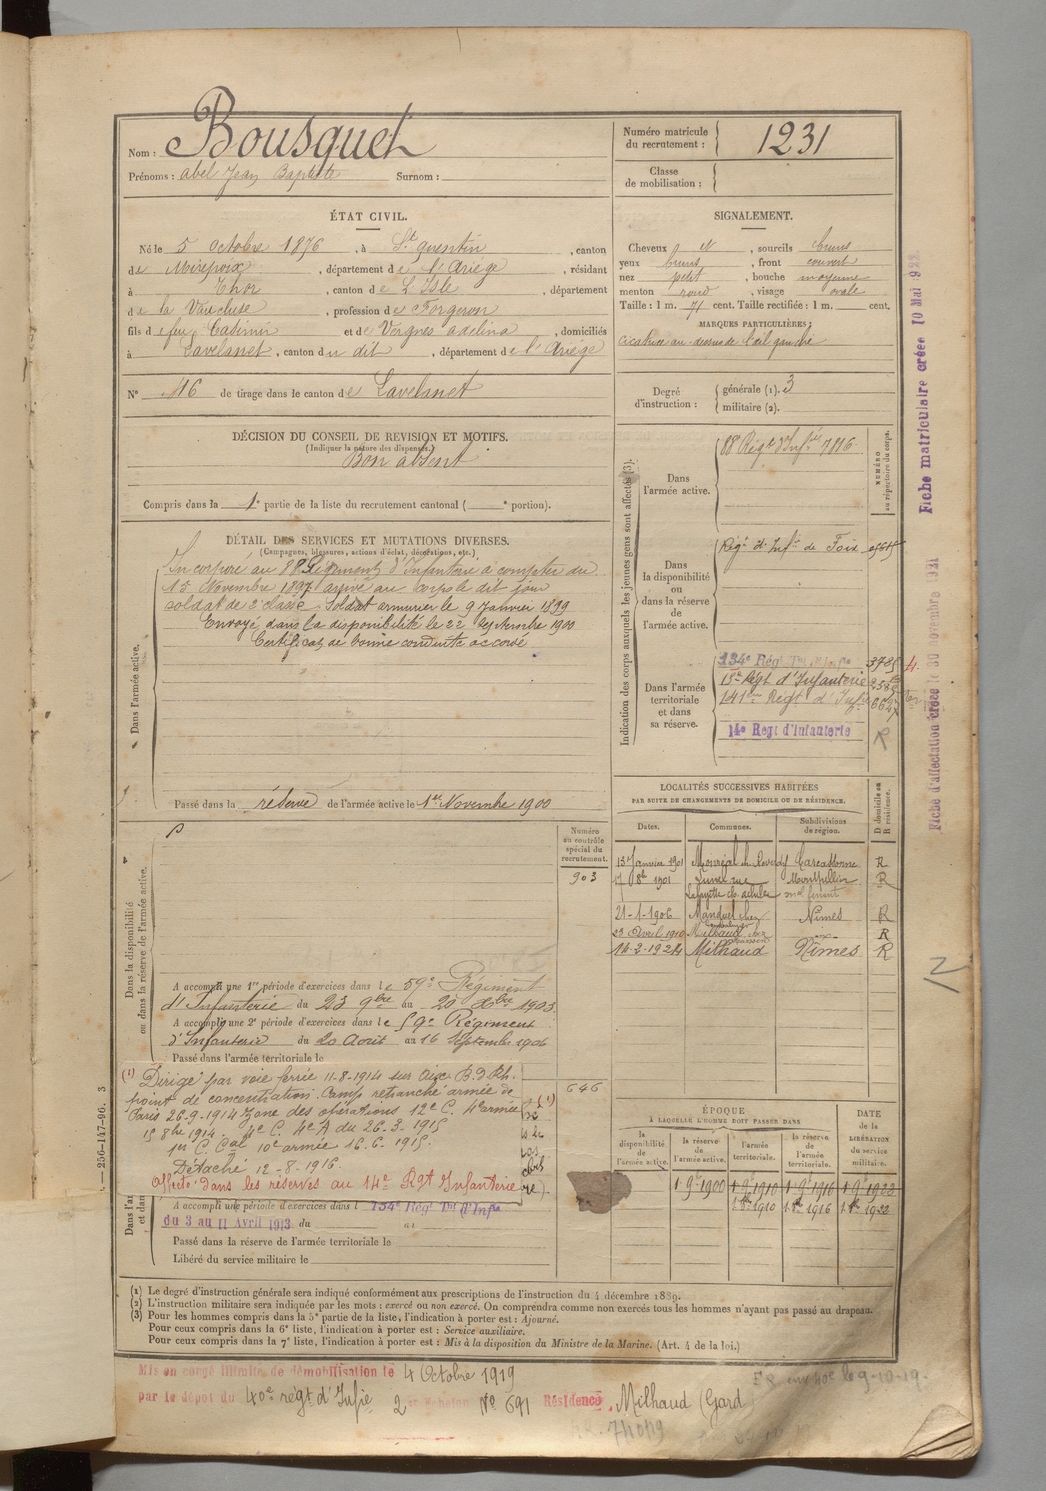 Nom : Bousquet
Prénoms : Abel Jean Baptiste Surnom :
Numéro matricule du recrutement : 1231
Classe de mobilisation :
ÉTAT CIVIL.
Né le 5 Octobre 1876, à St Quentin, canton
de Mirepoix, département de l'Ariège, résidant
à Thor, canton de L'Isle, département
de la Vaucluse, profession de Forgeron
fils de feu Casimir et de Vergnes Adelina, domiciliés
à Lavelanet, canton du dit, département de l'Ariège
N° 46 de tirage dans le canton de Lavelanet
SIGNALEMENT.
Cheveux et, sourcils bruns
yeux bruns, front couvert
nez petit, bouche moyenne
menton rond, visage ovale
Taille : 1 m. 71 cent. Taille rectifiée : 1 m. cent.
MARQUES PARTICULIÈRES :
cicatrice au-dessus de l'œil gauche
Degré d'instruction : générale (1). 3
militaire (2).
DÉCISION DU CONSEIL DE REVISION ET MOTIFS.
(Indiquer la nature des dispenses.)
Bon absent
Compris dans la 1e partie de la liste du recrutement cantonal ( e portion).
DÉTAIL DES SERVICES ET MUTATIONS DIVERSES.
(Campagnes, blessures, actions d'éclat, décorations, etc.)
Dans l'armée active.
Incorporé au 88 Régiment d'Infanterie à compter du
15 Novembre 1897 arrivé au corps le dit jour
soldat de 2e classe. Soldat armurier le 9 Janvier 1899
Envoyé dans la disponibilité le 22 Septembre 1900
Certificat de bonne conduite accordé
Passé dans la réserve de l'armée active le 1er Novembre 1900
Indication des corps auxquels les jeunes gens sont affectés (3).
NUMÉRO au répertoire du corps.
Dans l'armée active.
88 Régt d'Infie 7816
Dans la disponibilité ou dans la réserve de l'armée active.
Régt d'Infie de Foix
Dans l'armée territoriale et dans sa réserve.
134e Régt Tal d'Infie 3785
15e Régt d'Infanterie 2585
141ème Régt d'Infie 6627
14e Régt d'Infanterie R
Fiche matriculaire créée 10 Mai 1922
Fiche d'affectation créée le 30 novembre 1921
LOCALITÉS SUCCESSIVES HABITÉES
PAR SUITE DE CHANGEMENTS DE DOMICILE OU DE RÉSIDENCE.
Dates. Communes. Subdivisions de région. D domicile ou R résidence.
15 Janvier 1901 Carcassonne R
1901 Lunel rue Montpellier R
21-1-1906 Manduel chez Nîmes R
23 Avril 1910 Milhaud chez R
14-2-1924 Milhaud Nîmes R
Dans la disponibilité ou dans la réserve de l'armée active.
Numéro au contrôle spécial du recrutement.
903
A accompli une 1re période d'exercices dans le 59e Régiment
d'Infanterie du 23 9bre au 20 Xbre 1903
A accompli une 2e période d'exercices dans le 59e Régiment
d'Infanterie du 20 Août au 16 Septembre 1906
Passé dans l'armée territoriale le
646
(1) Dirigé par voie ferrée 11-8-1914 sur Aix. B.d.Rh.
point de concentration. Camp retranché armée de
Paris 26-9-1914 Zone des opérations 12e C. 4e armée
15 8bre 1914. 4e C. 4e A du 26.3.1915
1er C. Cal 10e armée 16.6.1915.
Détaché 12-8-1916.
Affecté dans les réserves au 14e Rgt Infanterie
A accompli une période d'exercices dans l 134e Régt Tal d'Infie
du 3 au 11 Avril 1913 du au
Passé dans la réserve de l'armée territoriale le
Libéré du service militaire le
ÉPOQUE
À LAQUELLE L'HOMME DOIT PASSER DANS
DATE DE LA LIBÉRATION du service militaire.
la disponibilité de l'armée active. la réserve de l'armée active. l'armée territoriale. la réserve de l'armée territoriale.
1 9e 1900 1 9e 1910 1 9e 1916 1 9e 1923
1 8e 1910 1 8e 1916 1 8e 1922
(1) Le degré d'instruction générale sera indiqué conformément aux prescriptions de l'instruction du 4 décembre 1889.
(2) L'instruction militaire sera indiquée par les mots : exercé ou non exercé. On comprendra comme non exercés tous les hommes n'ayant pas passé au drapeau.
(3) Pour les hommes compris dans la 5e partie de la liste, l'indication à porter est : Ajourné.
Pour ceux compris dans la 6e liste, l'indication à porter est : Service auxiliaire.
Pour ceux compris dans la 7e liste, l'indication à porter est : Mis à la disposition du Ministre de la Marine. (Art. 4 de la loi.)
Mis en congé illimité de démobilisation le 4 Octobre 1919
par le dépôt du 40e régt d'Infie 2e échelon N° 691 Résidence Milhaud (Gard)
— 256-147-96. 3